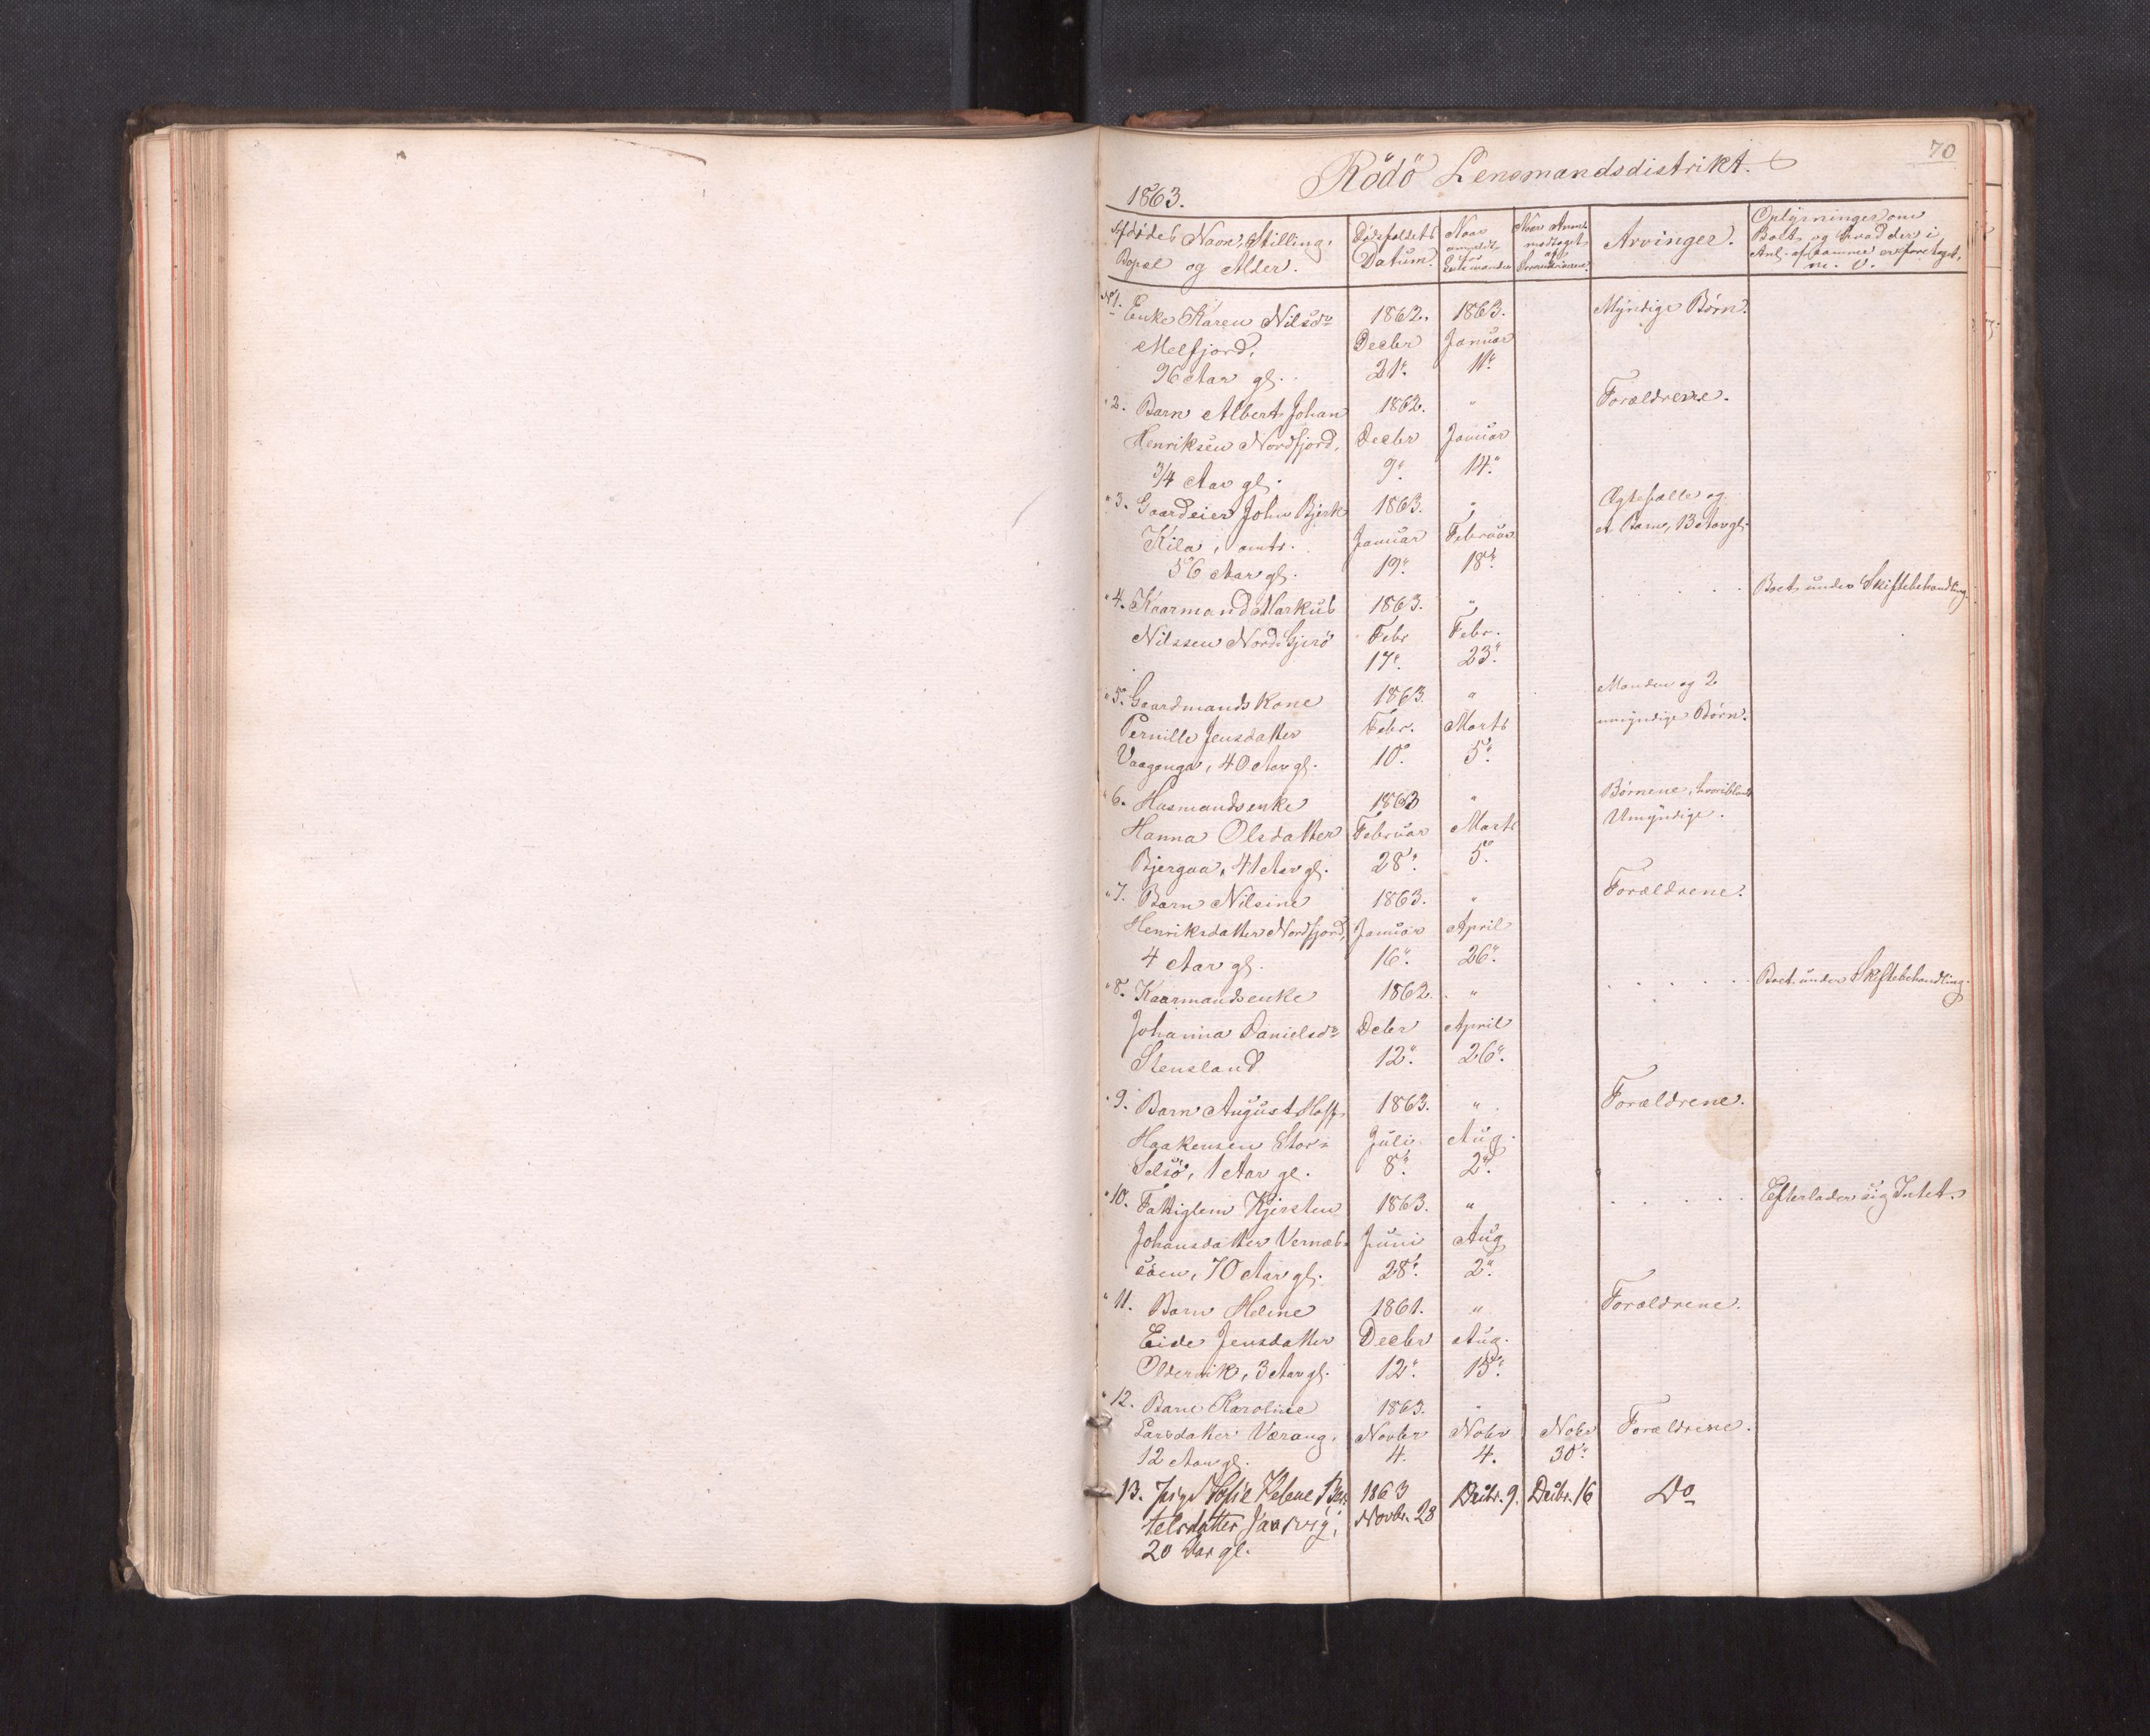 70
Rödö Lensmandsdistrikt.
1863.
Afdödes Navn, Stilling, Bopæl og Alder. | Dödsfaldets Datum. | Naar anmeldt for Lensmanden | Naar Anm. modtaget af | Arvinger. | Oplysninger om Boet og hvad der i Anl. af samme er foretaget, m. v.
No 1. Enke Karen Nilsdr | 1862. | 1863. | Myndige Børn.
Melfjord, | Decbr | Januar
96 Aar gl. | 21". | 11".
" 2. Barn Albert Johan | 1862. | " | Forældrene.
Henriksen Nordfjord, | Decbr | Januar
3/4 Aar gl. | 9". | 14."
" 3. Gaardeier John Bjerk | 1863. | " | Ægtefælle og
Kila, omtr. | Januar | Februar | et Barn, 13 Aar gl.
56 Aar gl. | 19". | 18".
" 4. Kaarmand Markus | 1863. | " | . . . . . | Boet under Skiftebehandling.
Nilssen Nord Gjerö | Febr | Febr.
17". | 23".
" 5. Gaardmandskone | 1863. | " | Manden og 2
Pernille Jensdatter | Febr. | Marts | umyndige Børn.
Vaaganga, 40 Aar gl. | 10". | 5".
" 6. Husmandsenke | 1863 | " | Børnene, hvoriblandt
Hanna Olsdatter | Februar | Marts | Umyndige.
Bjergaa, 41 Aar gl. | 28". | 5".
" 7. Barn Nilsine | 1863. | " | Forældrene.
Henriksdatter Nordfjord, | Januar | April
4 Aar gl. | 16". | 26".
" 8. Kaarmandsenke | 1862. | " | . . . . . | Boet under Skiftebehandling.
Johanna Danielsdr | Decbr | April
Stensland | 12". | 26".
" 9. Barn August Hoff | 1863. | " | Forældrene.
Haakensen Stor= | Juli | Aug.
Selsö, 1 Aar gl. | 8". | 2".
" 10. Fattiglem Kjersten | 1863. | " | . . . . . | Efterlader sig Intet.
Johansdatter Vernæs= | Juni | Aug
söen, 70 Aar gl. | 28". | 2".
" 11. Barn Helene | 1861. | " | Forældrene.
Eide Jensdatter | Decbr | Aug.
Oldervik, 3 Aar gl. | 12". | 15".
" 12. Barn Karoline | 1863. | "
Larsdatter Værang, | Novbr | Nobr | Nobr | Forældrene.
12 Aar gl. | 4. | 4. | 30".
" 13. Pige Sofie Helene Bar= | 1863 | Decbr. 9. | Decbr. 16 | Do
telsdatter Jaasvig, | Novbr. 28
20 Aar gl.